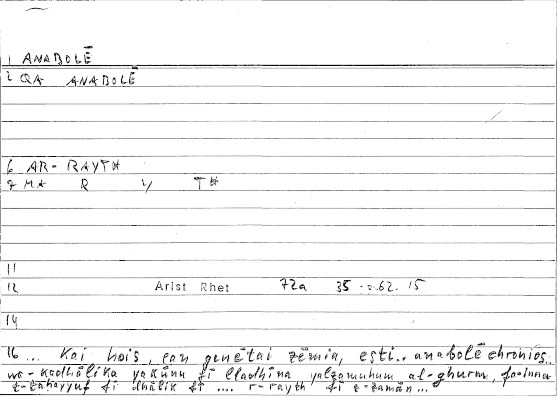 1 ANABOLĒ
2 QA ANABOLĒ
6 AR-RAYTH
7 MA R Y TH
11
12 Arist Rhet 72a 35 - 62. 15
14
16 ... Kai hois, ean genētai zēmia, esti.. anabolē chronios..
wa-kadhālika yakūnu fī lladhīna yalzamuhum al-ghurm, fa-inna
t-taḥayyuf fī dhālik fī .... r-rayth fī z-zamān...